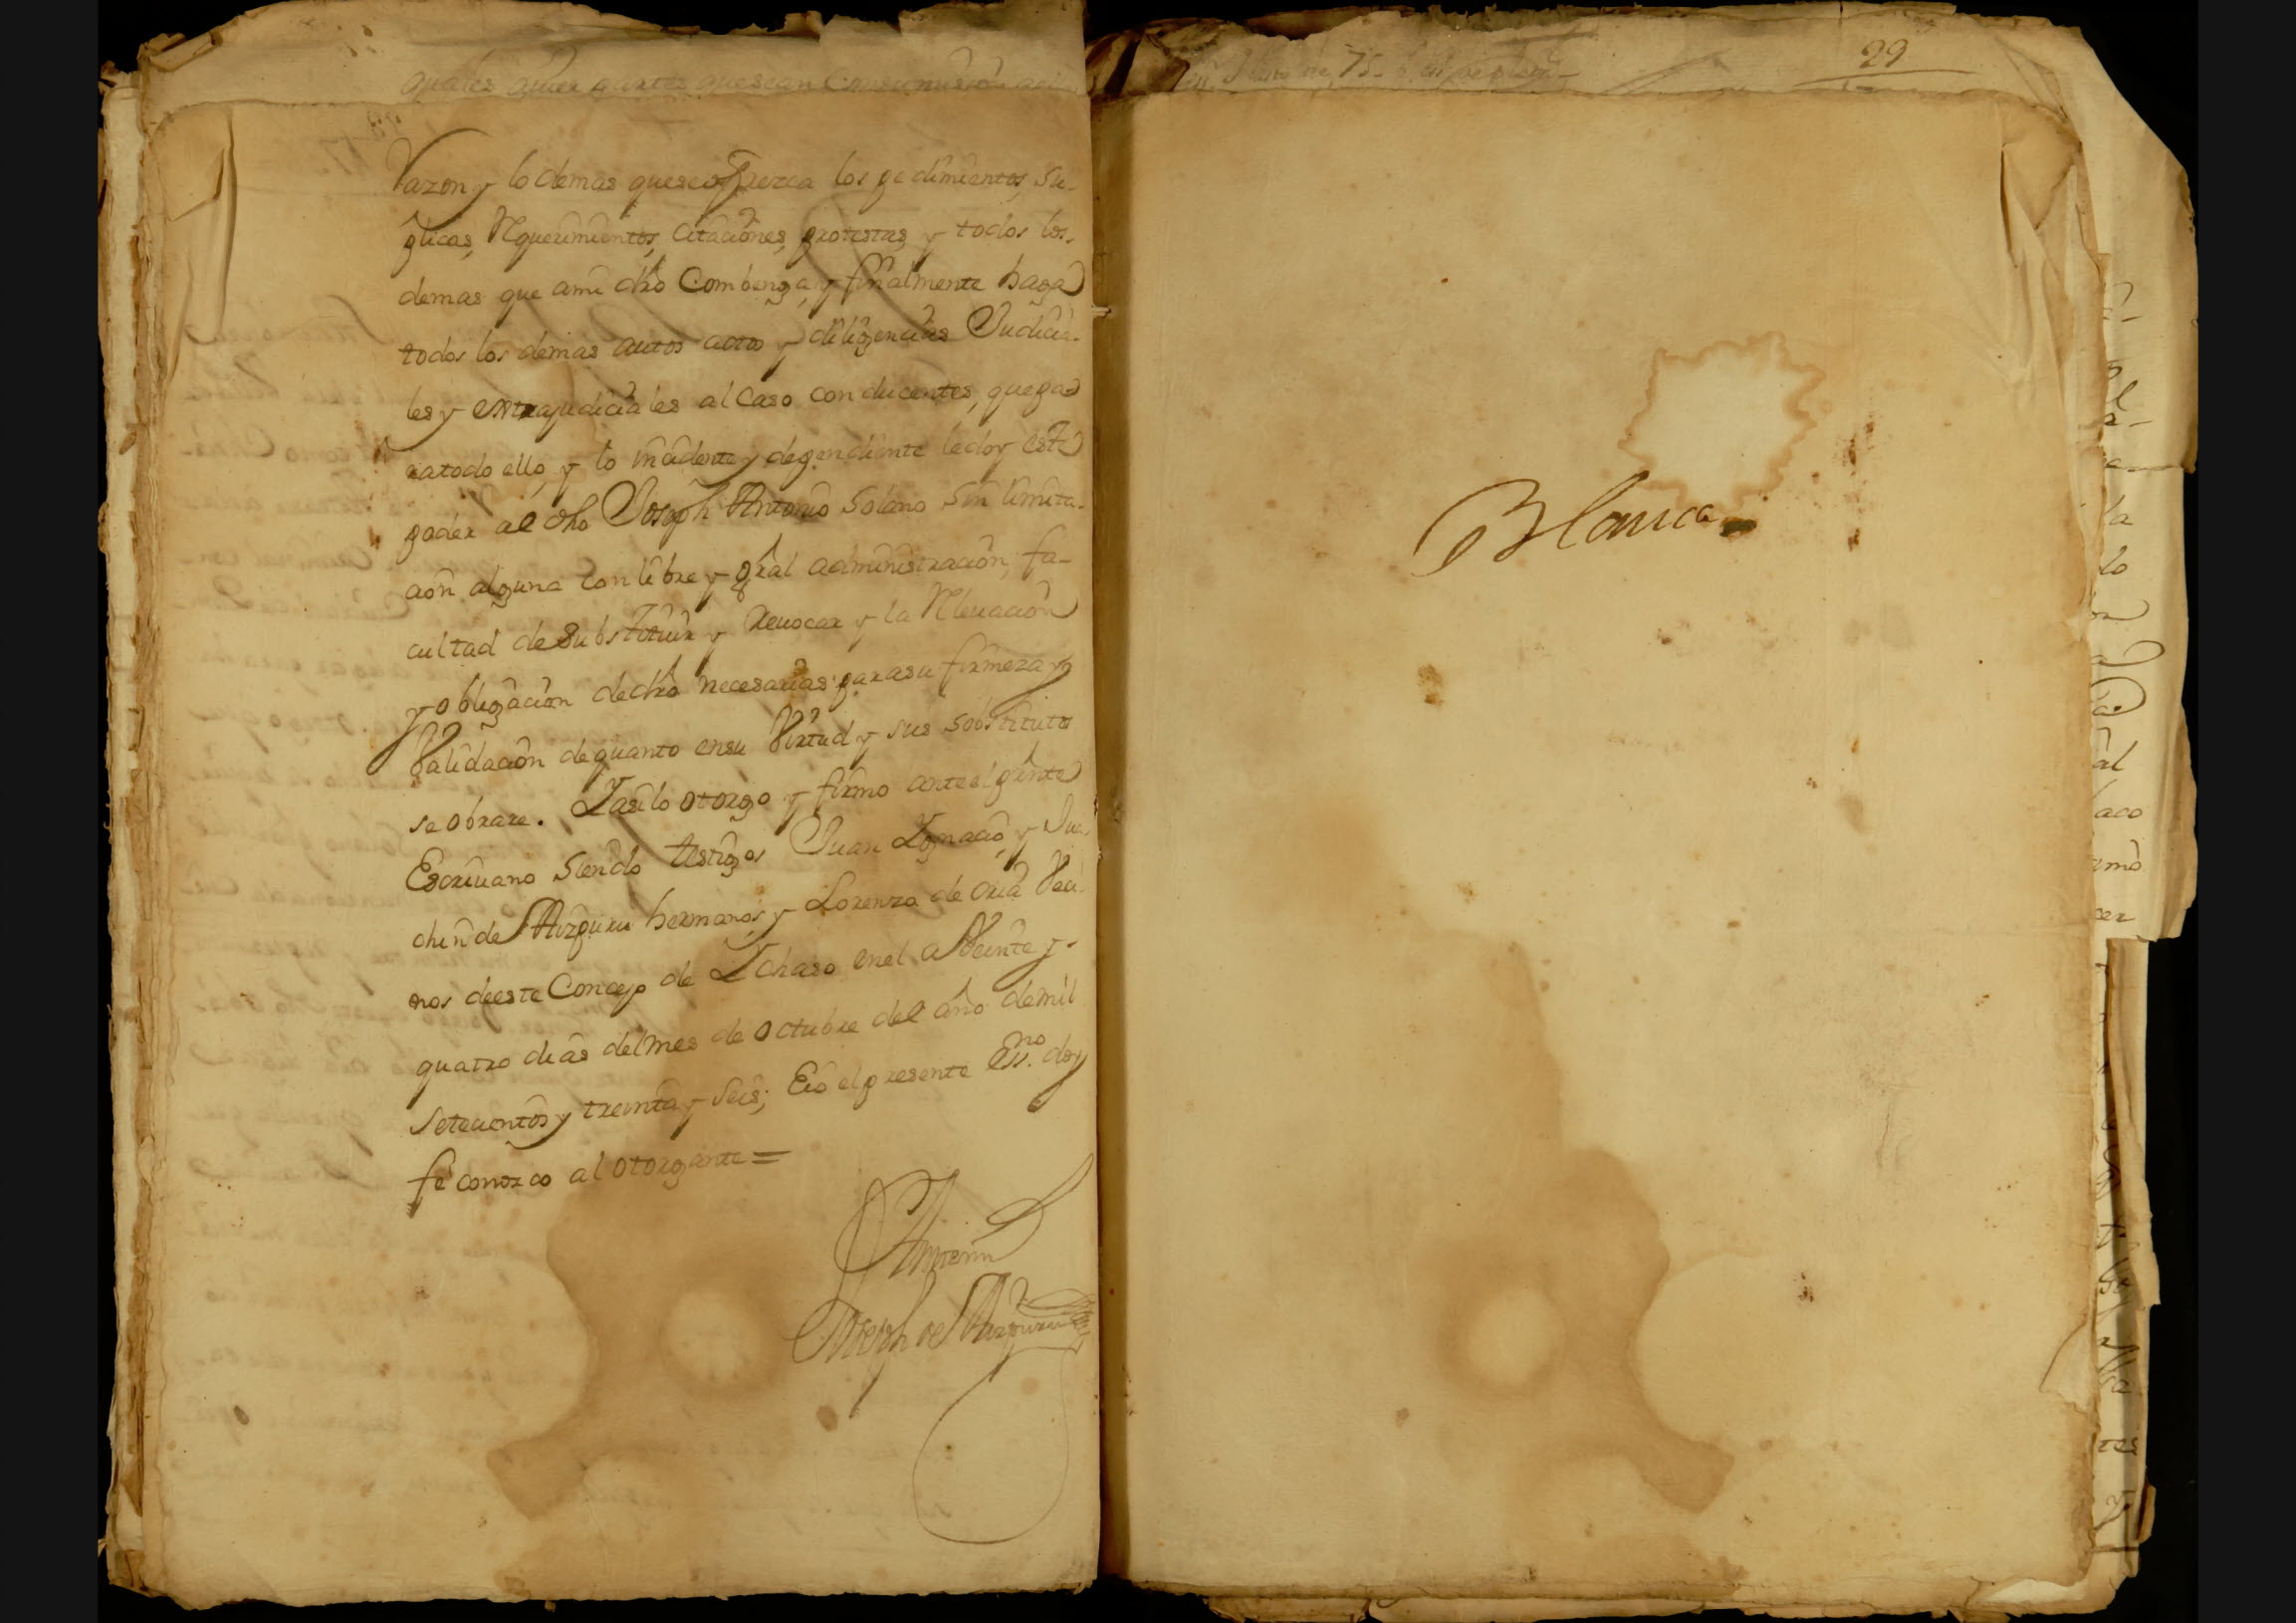 quales quier partes que sean
Razon y lo demas que se ofrezca los pedimientos, su-
plicas, Requerimientos, citaciones, protestas, y todos los
demas que ami dho Combenga, y finalmente haga
todos los demas autos actos y diligencias Judicia-
les y extrajudiciales al caso conducentes, que pa-
ra todo ello, y lo incidente y dependiente le doy este
poder al dho Joseph Antonio Solano sin limita-
cion alguna con libre y gral administracion, fa-
cultad de substituir y Reuocar y la Releuacion
y obligacion de dro necesarias para su firmeza y
Validacion de quanto en su Virtud y sus sobstitutos
se obrare. Y asi lo otorgo y firmo ante el prnte
Escriuano siendo testigos Juan Ygnacio, y Jua
chin de Aizpuru hermanos, y Lorenzo de Oria Veci-
nos de este Concejo de Ychaso en el a Veinte y
quatro dias del Mes de Octubre del año de mil
setecientos y treinta y seis; E io el presente Essno doy
fe conozco al otorgante =
Ante mi
Joseph de Aizpuru
29
Blanca